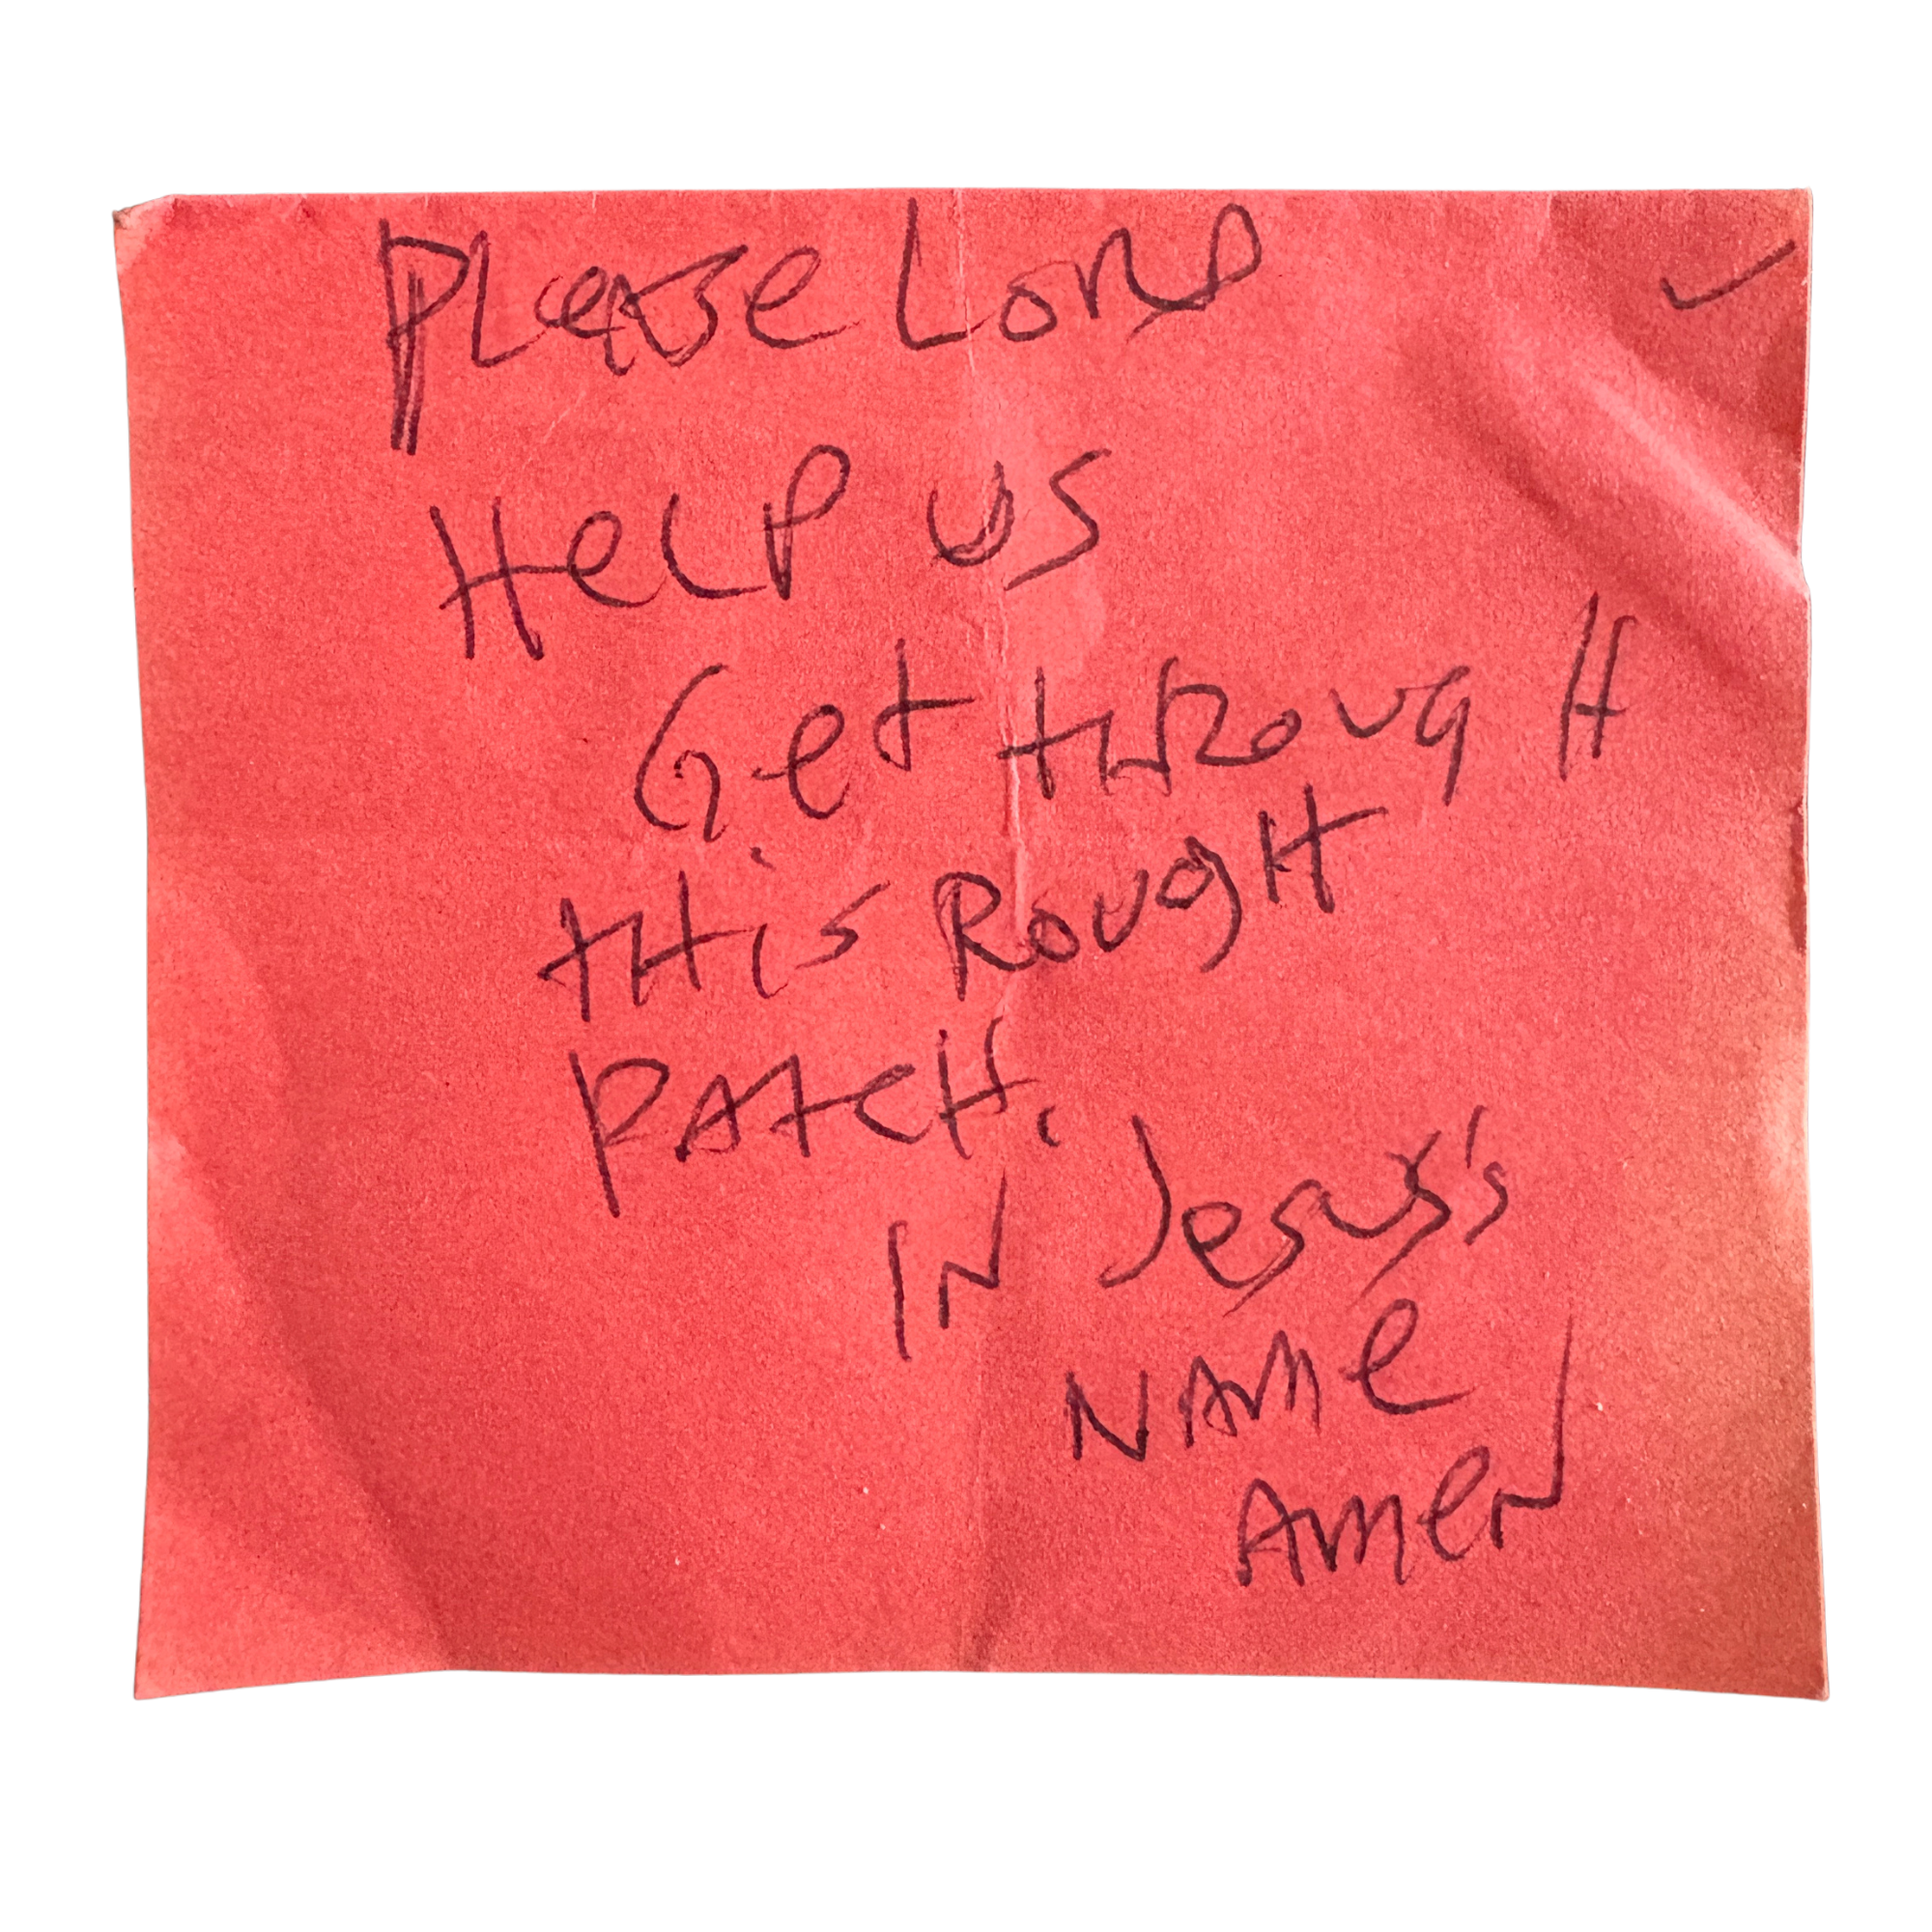 Please Lord
Help us
Get through
this Rough
patch.
IN Jesus's
Name
Amen